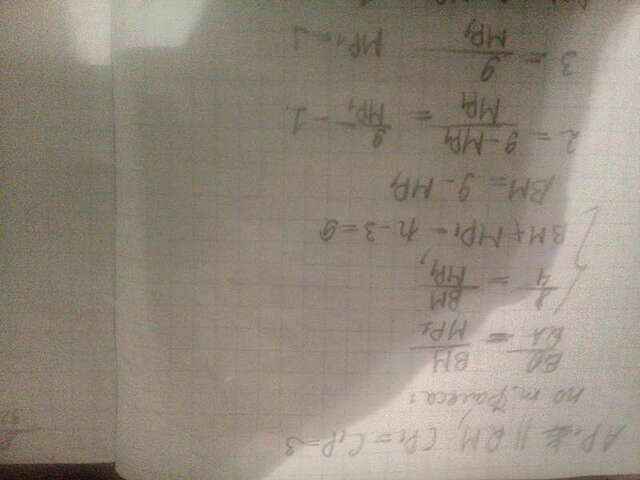 AP₁ || QM, CP₁ = C₁P = 3
по т. Фалеса:
BQ/QA = BM/MP₁
8/4 = BM/MP₁
BM + MP₁ = 12 - 3 = 9
BM = 9 - MP₁
2 = (9 - MP₁)/MP₁ = 9/MP₁ - 1
3 = 9/MP₁ MP₁ =